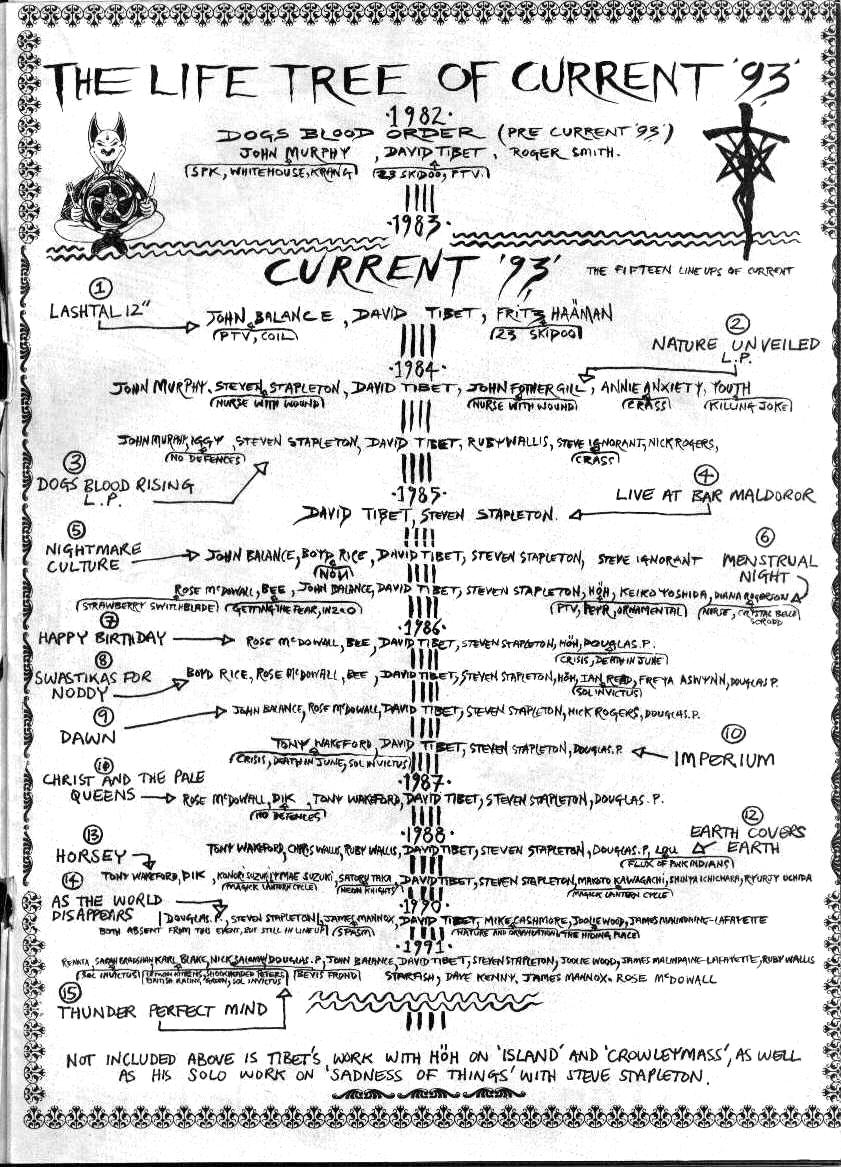 THE LIFE TREE OF CURRENT '93'
·1982·
DOGS BLOOD ORDER (PRE CURRENT '93')
JOHN MURPHY, DAVID TIBET, ROGER SMITH.
(SPK, WHITEHOUSE, KRANG) (23 SKIDOO, PTV)
·1983·
CURRENT '93'
THE FIFTEEN LINE UPS OF CURRENT
①
LASHTAL 12"
JOHN BALANCE, DAVID TIBET, FRITZ HAÄMAN
(PTV, COIL) (23 SKIDOO)
②
NATURE UNVEILED
L.P.
·1984·
JOHN MURPHY, STEVEN STAPLETON, DAVID TIBET, JOHN FOTHERGILL, ANNIE ANXIETY, YOUTH
(NURSE WITH WOUND) (NURSE WITH WOUND) (CRASS) (KILLING JOKE)
JOHN MURPHY, IGGY, STEVEN STAPLETON, DAVID TIBET, RUBY WALLIS, STEVE IGNORANT, NICK ROGERS,
(NO DEFENCES) (CRASS)
③
DOGS BLOOD RISING
L.P.
·1985·
④
LIVE AT BAR MALDOROR
DAVID TIBET, STEVEN STAPLETON.
⑤
NIGHTMARE
CULTURE
JOHN BALANCE, BOYD RICE, DAVID TIBET, STEVEN STAPLETON, STEVE IGNORANT
(NON)
⑥
MENSTRUAL
NIGHT
ROSE McDOWALL, BEE, JOHN BALANCE, DAVID TIBET, STEVEN STAPLETON, HÖH, KEIKO YOSHIDA, DIANA ROGERSON
(STRAWBERRY SWITCHBLADE) (GETTING THE FEAR, INZKO) (PTV, PEYR, ORNAMENTAL) (NURSE, CRYSTAL BELLE SCRODD)
·1986·
⑦
HAPPY BIRTHDAY
ROSE McDOWALL, BEE, DAVID TIBET, STEVEN STAPLETON, HÖH, DOUGLAS P.
(CRISIS, DEATH IN JUNE)
⑧
SWASTIKAS FOR
NODDY
BOYD RICE, ROSE McDOWALL, BEE, DAVID TIBET, STEVEN STAPLETON, HÖH, IAN READ, FREYA ASWYNN, DOUGLAS P.
(SOL INVICTUS)
⑨
DAWN
JOHN BALANCE, ROSE McDOWALL, DAVID TIBET, STEVEN STAPLETON, NICK ROGERS, DOUGLAS P.
⑩
IMPERIUM
TONY WAKEFORD, DAVID TIBET, STEVEN STAPLETON, DOUGLAS P.
(CRISIS, DEATH IN JUNE, SOL INVICTUS)
·1987·
⑪
CHRIST AND THE PALE
QUEENS
ROSE McDOWALL, DIK, TONY WAKEFORD, DAVID TIBET, STEVEN STAPLETON, DOUGLAS P.
(NO DEFENCES)
·1988·
⑫
EARTH COVERS
EARTH
TONY WAKEFORD, CHRIS WALLIS, RUBY WALLIS, DAVID TIBET, STEVEN STAPLETON, DOUGLAS P, LOU
(FLUX OF PINK INDIANS)
⑬
HORSEY
TONY WAKEFORD, DIK, KONORI SUZUKI, MAE SUZUKI, SATORU TAKA, DAVID TIBET, STEVEN STAPLETON, MAKOTO KAWAGACHI, SHINYA ICHICHARA, RYURJY UCHIDA
(MAGICK LANTERN CYCLE) (NEON KNIGHTS) (MAGICK LANTERN CYCLE)
·1990·
⑭
AS THE WORLD
DISAPPEARS
DOUGLAS P., STEVEN STAPLETON, JAMES MANNOX, DAVID TIBET, MIKE CASHMORE, JOOLIE WOOD, JAMES MALINDAINE-LAFAYETTE
BOTH ABSENT FROM THIS EVENT, BUT STILL IN LINE UP (SPASM) (NATURE AND ORGANISATION) (THE HIDING PLACE)
·1991·
RENATA, SARAH BRADSHAW, KARL BLAKE, NICK SALOMAN, DOUGLAS P., JOHN BALANCE, DAVID TIBET, STEVEN STAPLETON, JOOLIE WOOD, JAMES MALINDAINE-LAFAYETTE, RUBY WALLIS
(SOL INVICTUS) (LEMON KITTENS, SHOCKHEADED PETERS, BRITISH RACING GREEN, SOL INVICTUS) (BEVIS FROND) STARFISH, DAVE KENNY, JAMES MANNOX, ROSE McDOWALL
⑮
THUNDER PERFECT MIND
NOT INCLUDED ABOVE IS TIBET'S WORK WITH HÖH ON 'ISLAND' AND 'CROWLEYMASS', AS WELL
AS HIS SOLO WORK ON 'SADNESS OF THINGS' WITH STEVE STAPLETON.